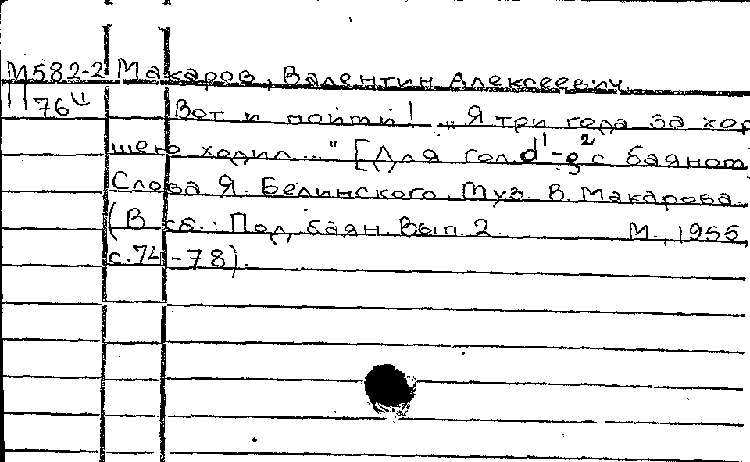 М582-2 Макаров, Валентин Алексеевич.
П 76 Вот и пойми! „Я три года за хор
шего ходил..." [Для гол d¹-g² с баяном]
Слова Я. Белинского. Муз. В. Макарова.
(В сб.: Под баян. Вып. 2. М., 1955,
с. 74-78).